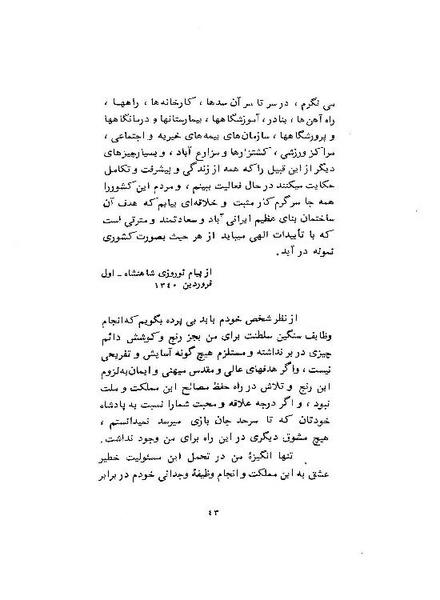 می نگرم ، در سر تا سر آن سدها ، کارخانه‌ها ، راهها ،
راه آهن‌ها ، بنادر ، آموزشگاهها ، بیمارستانها و درمانگاهها
و پرورشگاهها ، سازمان‌های بیمه‌های خیریه و اجتماعی ،
مراکز ورزشی ، کشتزارها و مزارع آباد ، و بسیار چیزهای
دیگر از این قبیل را که همه از زندگی و پیشرفت و تکامل
حکایت میکنند در حال فعالیت ببینم ، و مردم این کشور را
همه جا سرگرم کار مثبت و خلاقه‌ای بیابم که هدف آن
ساختمان بنای عظیم ایرانی آباد و سعادتمند و مترقی است
که با تأییدات الهی میباید از هر حیث بصورت کشوری
نمونه در آید .
از پیام نوروزی شاهنشاه ـ اول
فروردین ۱۳۴۰
از نظر شخص خودم باید بی پرده بگویم که انجام
وظایف سنگین سلطنت برای من بجز رنج و کوشش دائم
چیزی در بر نداشته و مستلزم هیچ گونه آسایش و تفریحی
نیست ، و اگر هدفهای عالی و مقدس میهنی و ایمان به لزوم
این رنج و تلاش در راه حفظ مصالح این مملکت و ملت
نبود ، و اگر درجه علاقه و محبت شما را نسبت به پادشاه
خودتان که تا سرحد جان بازی میرسد نمیدانستم ،
هیچ مشوق دیگری در این راه برای من وجود نداشت .
تنها انگیزهٔ من در تحمل این مسئولیت خطیر
عشق به این مملکت و انجام وظیفهٔ وجدانی خودم در برابر
۴۳